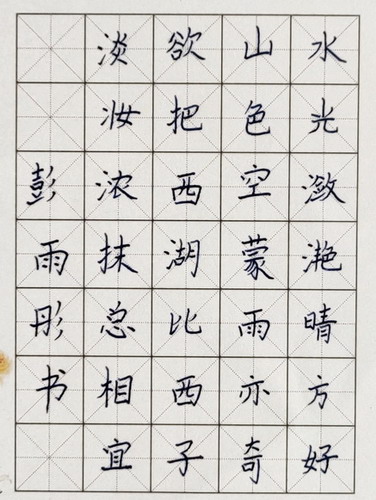 水光潋滟晴方好
山色空蒙雨亦奇
欲把西湖比西子
淡妆浓抹总相宜
彭雨彤书